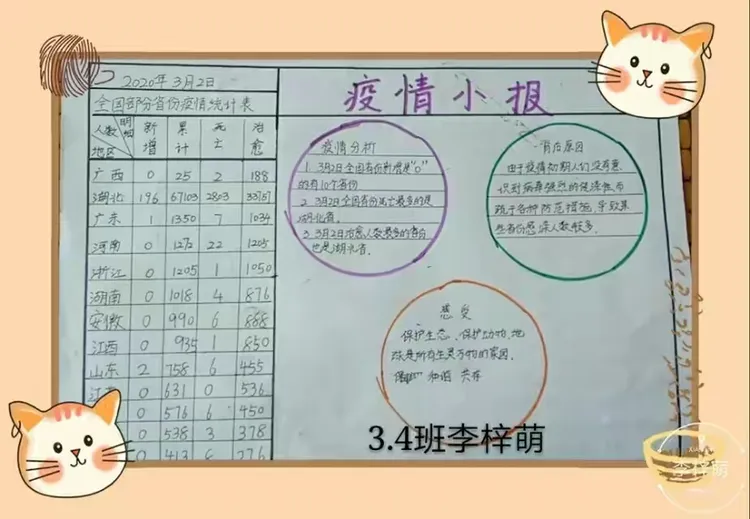 2020年3月2日
全国部分省份疫情统计表
人数 明细 地区 新增 累计 死亡 治愈
广西 0 25 2 188
湖北 196 67103 2803 33757
广东 1 1350 7 1034
河南 0 1272 22 1205
浙江 0 1205 1 1050
湖南 0 1018 4 876
安徽 0 990 6 888
江西 0 935 1 850
山东 2 758 6 455
江 0 631 0 536
0 576 6 450
0 538 3 378
0 413 6 276
疫情小报
疫情分析
1. 3月2日全国省份新增是"0"
的有10个省份
2. 3月2日全国省份死亡最多的是
湖北省。
3. 3月2日治愈人数最多的省份
也是湖北省。
背后原因
由于疫情初期人们没有意
识到病毒强烈的传染性而
疏于各种防范措施,导致某
些省份感染人数较多。
感受
保护生态、保护动物,地
球是所有生灵万物的家园。
和谐 共存
3.4班李梓萌
李梓萌